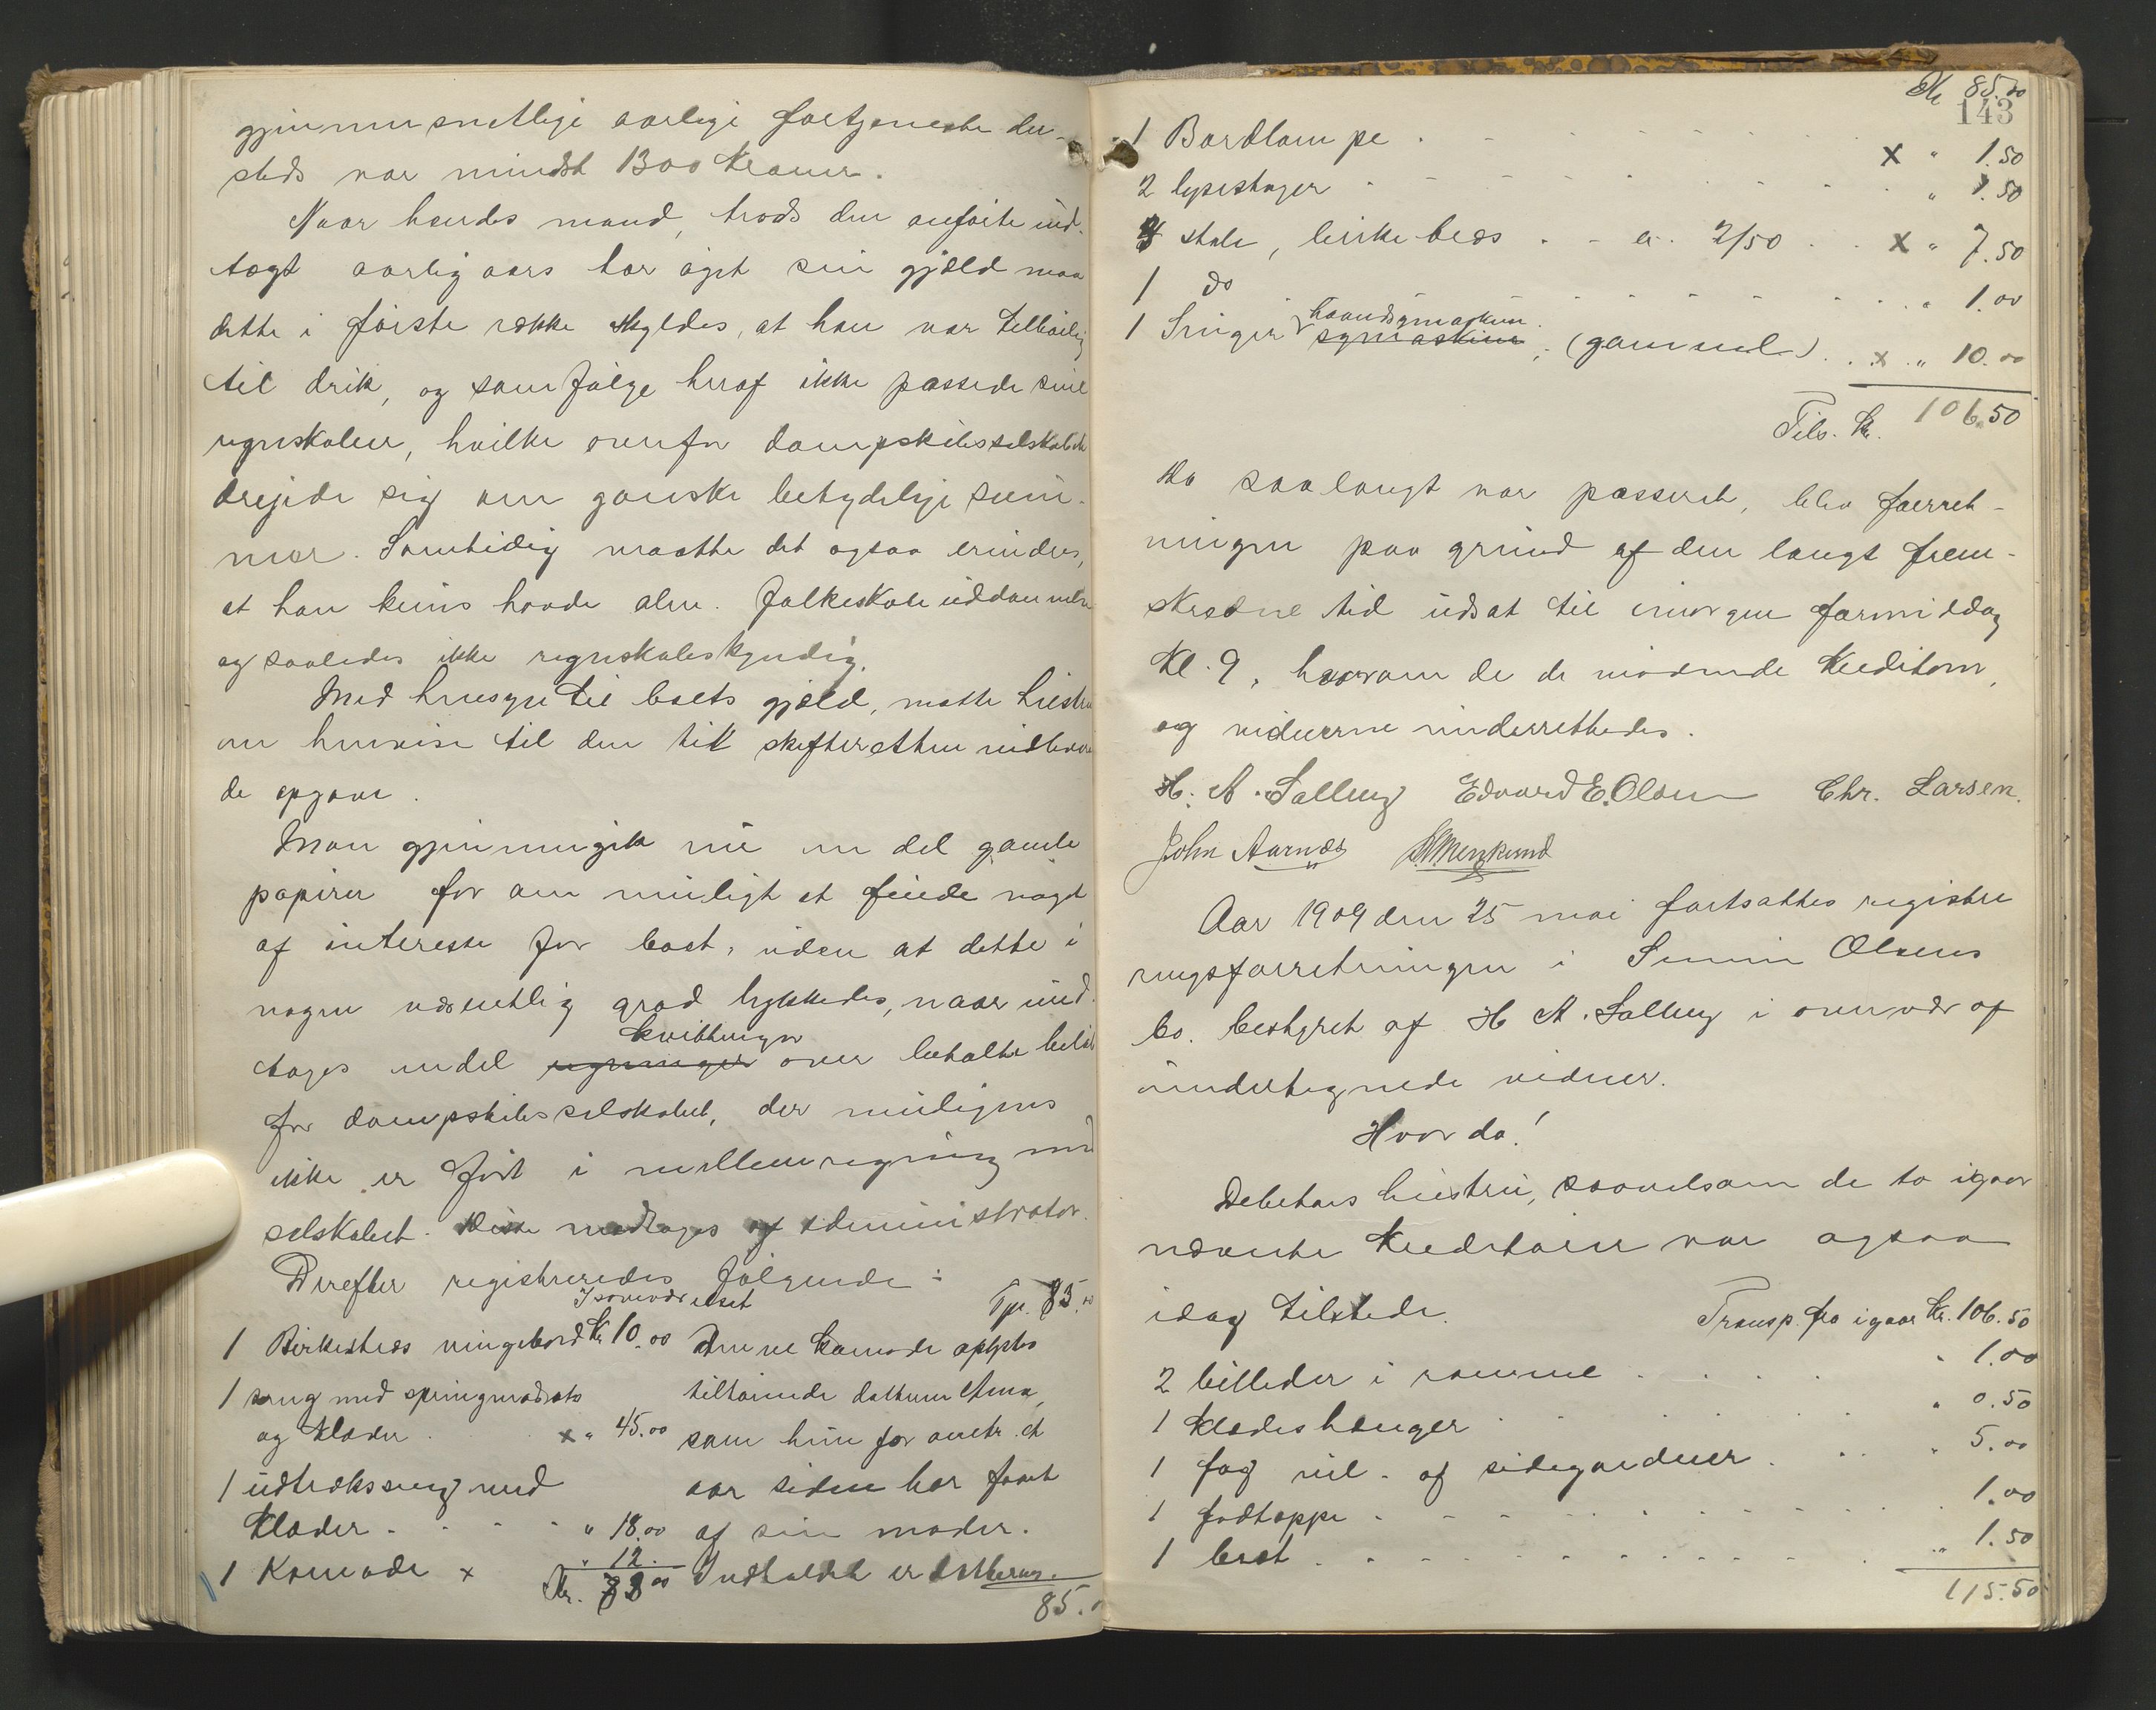 gjennemsnitlige aarlige fortjeneste der-
steds var mindst 1300 Kroner.
Naar hendes mand, trods den anførte ind-
tægt aarlig aars har øget sin gjæld maa
dette i første række skyldes, at han var tilbøielig
til drik, og som følge heraf ikke passede sine
regnskaber, hvilke overfor dampskibsselskabet
drejede sig om ganske betydelige sum-
mer. Samtidig maatte det ogsaa erindres,
at han kuns havde alm. folkeskoleuddannelse
og saaledes ikke regnskabskyndig.
Med hensyn til boets gjæld, maatte hustru
en henvise til den til skifteretten indlevere
de opgave.
Man gjennemgik nu en del gamle
papirer for om muligt at finde noget
af interesse for boet, uden at dette i
nogen væsentlig grad lykkedes, naar und-
kvitteringer
tages endel regninger over betalte beløb
for dampskibsselskabet, der muligens
ikke er ført i mellemregning med
selskabet. Disse modtages af administrator.
Derefter registreredes følgende:
I soveværelset Tp. 85.00
1 Birketræs vingebord Kr 10.00 Denne Komode oplystes
1 seng med springmadrats tilhørende datteren Anna,
og Klæder x " 45.00 som hun for omtr. et
1 udtræksseng med aar siden har faaet
Klæder " 18.00 af sin moder.
1 Komode x " 12. Indholdet er datterens.
Kr. 85.00
143
Kr 85.00
1 Bordlampe x " 1.50
2 lysestager " 1.50
3 stole, birketræs a. 2/50 x " 7.50
1 do " 1.00
haandsymaskine
1 Singer symaskine, (gammel) x " 10.00
Tils. Kr. 106.50
Da saalangt var passeret, blev forret-
ningen paa grund af den langt frem-
skredne tid udsat til imorgen formiddag
Kl. 9, hvorom de de mødende Kreditorer,
og vidnerne underrettedes.
H. A. Salling Edvard E. Olsen Chr. Larsen.
John Aarnæs
Aar 1909 den 25 mai fortsattes registre
ringsforretningen i Olsens
bo. bestyret af H A. Salling i overvær af
undertegnede vidner.
Hvor da!
Debitors hustru, saavelsom de to igaar
nævnte Kreditorer var ogsaa
idag tilstede. Transp. fra igaar Kr. 106.50
2 billeder i ramme " 1.00
1 Klædeshænger " 0.50
1 fag sidegardiner " 5.00
1 1.00
1 bræt " 1.50
115.50